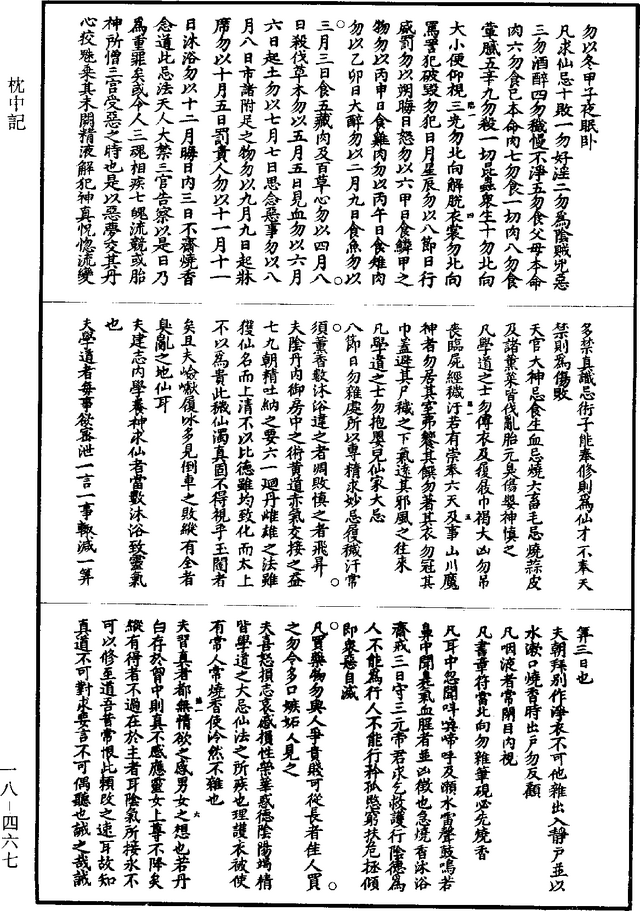 枕中記
勿以冬甲子夜眠卧
凡求仙忌十敗一勿好淫二勿為陰賊兇惡
三勿酒醉四勿穢慢不淨五勿食父母本命
肉六勿食己本命肉七勿食一切肉八勿食
葷膩五辛九勿殺一切昆蟲衆生十勿北向
大小便仰視三光勿北向解脫衣裳勿北向
罵詈犯破毀勿犯日月星辰勿以八節日行
威罰勿以朔晦日怒勿以六甲日食鱗甲之
物勿以丙申日食雞肉勿以丙午日食雉肉
勿以乙卯日大醉勿以二月九日食魚勿以
三月三日食五藏肉及百草心勿以四月八
日殺伐草木勿以五月五日見血勿以六月
六日起土勿以七月七日思念惡事勿以八
月八日市諸附足之物勿以九月九日起牀
席勿以十月五日罰責人勿以十一月十一
日沐浴勿以十二月晦日內三日不齋燒香
念道此忌法天人大禁三官告察以是日乃
為重罪矣或令人三魂相疾七魄流競或胎
神所憎三宮受惡之時也是以惡夢交其丹
心狡魅乘其未闕精液解犯神真怳惚流變
多禁真識忌術子能奉修則為仙才不奉天
禁則為傷敗
天官大神忌食生血忌燒六畜毛忌燒蒜皮
及諸薰菜皆伐亂胎元臭倍嬰神慎之
凡學道之士勿傳衣及履屐巾褐大凶勿弔
喪臨屍經穢汙若有崇奉六天及事山川魔
神者勿居其室弗饗其饌勿著其衣勿冠其
巾蓋避其尸穢之下氣遠其邪風之往來
凡學道之士勿抱嬰兒仙家大忌
八節日勿雜處所以專精求妙忌履穢汗常
須薰香數沐浴違之者凋敗慎之者飛昇
夫陰丹內御房中之術黃道赤氣交接之益
七九朝精吐納之要六一迴丹雌雄之法雖
獲仙名而上清不以比德雖均致化而太上
不以為貴此穢仙濁真固不得視乎玉闕者
矣且夫嶮巘履冰多見倒車之敗縱有全者
臭亂之地仙耳
夫建志內學養神求仙者當數沐浴致靈氣
也
夫學道者每事欲密泄一言一事輒減一筭
筭三日也
夫朝拜別作淨衣不可他雜出入靜户並以
水漱口燒香時出户勿反顧
凡咽液者常閉目內視
凡書童符當北向勿雜筆硯必先燒香
凡耳中忽聞啼呼及瀨水雷聲鼓鳴若
鼻中聞臭氣血腥者並凶徵也急燒香沐浴
齋戒三日守三元帝君求乞救護行陰德為
人不能為行人不能行矜孤愍窮扶危拯傾
即衆惡自滅
凡買藥物勿與人爭貴賤可從長者佳人買
之勿令多口嫉妬人見之
夫喜怒損志哀感損性榮華惑德陰陽竭精
皆學道之大忌仙法之所疾也理護衣被使
有常人常燒香使泠然不雜也
夫習真者都無情欲之感男女之想也若丹
白存於胷中則真不感應靈女上尊不降矣
縱有得者不過在於主者耳陰氣所接永不
可以修至道吾昔常恨此賴改之速耳故知
真道不可對求要言不可偶聽也誡之哉誡
一八-四六七